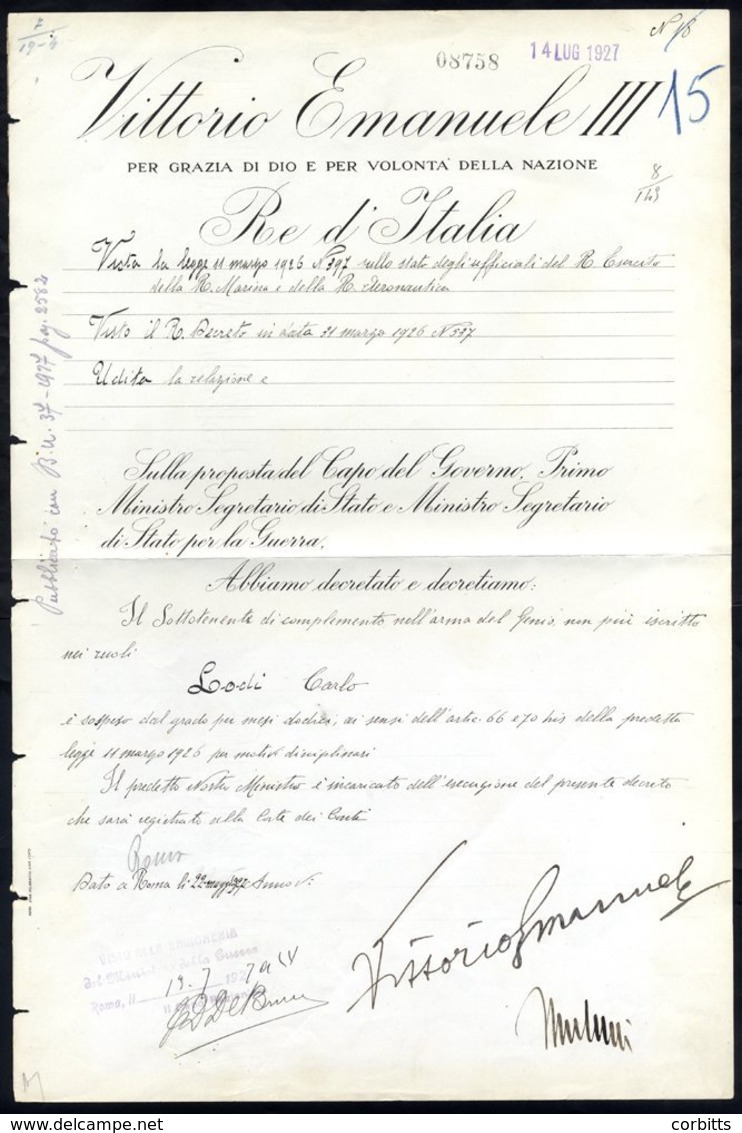 7
19-4
08758
14 LUG 1927
15
Vittorio Emanuele III
PER GRAZIA DI DIO E PER VOLONTA' DELLA NAZIONE
8
143
Re d'Italia
Vista la legge 11 marzo 1926 N 397 sullo stato degli ufficiali del R. Esercito
della R. Marina e della R. Aeronautica
Visto il R. Decreto in data 31 marzo 1926 N 537
Udita la relazione e
Pubblicato con B.U. 37-1927 pag. 2582
Sulla proposta del Capo del Governo, Primo
Ministro Segretario di Stato e Ministro Segretario
di Stato per la Guerra,
Abbiamo decretato e decretiamo:
Il Sottotenente di complemento nell'arma del Genio, non più iscritto
nei ruoli
Lodi Carlo
è sospeso dal grado per mesi dodici, ai sensi dell'art. 66 e 70 bis della predetta
legge 11 marzo 1926 per motivi disciplinari
Il predetto Nostro Ministro è incaricato dell'esecuzione del presente decreto
che sarà registrato alla Corte dei Conti
Dato a Roma li 22 Anno V.
VISTO ALLA RAGIONERIA
del Ministero della Guerra
Roma, li 19.7 192
Vittorio Emanuele
corbitts